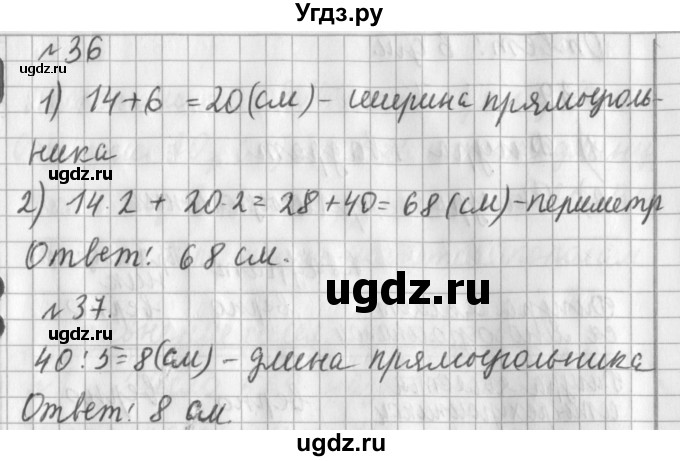 Угдз.ру
№36
ugdz.ru
1) 14+6 =20(см) - ширина прямоуголь-
ника
ugdz.ru
2) 14·2 + 20·2= 28+40= 68(см)-периметр
Ответ: 68 см.
ugdz.ru
ugdz.ru
№37.
ugdz.ru
40:5=8(см) - длина прямоугольника
Ответ: 8 см.
ugdz.ru
ugdz.ru